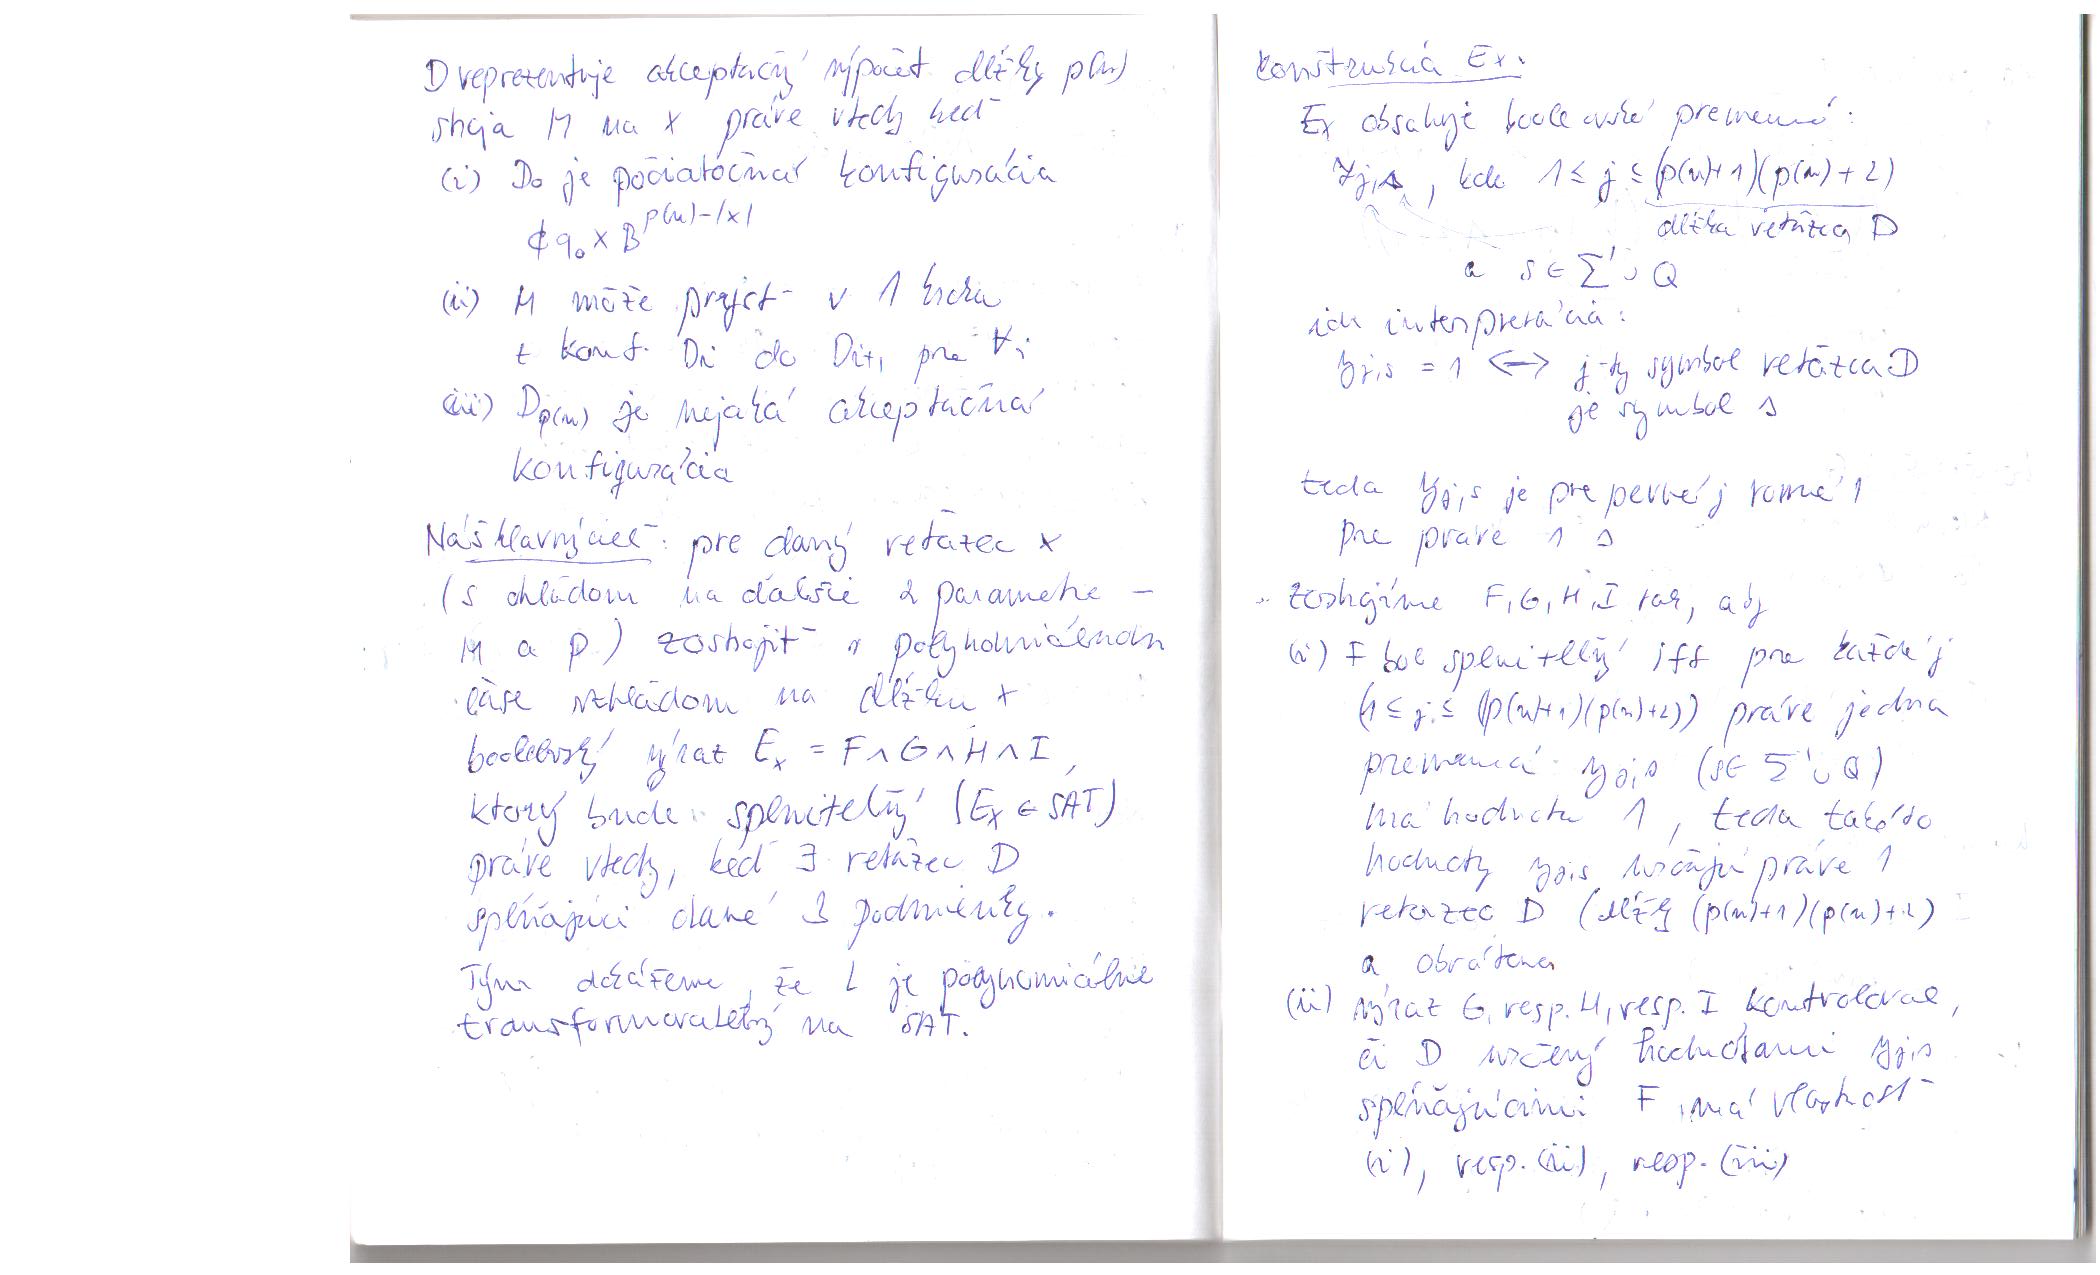 D reprezentuje akceptačný výpočet dĺžky p(n)
stroja M na x práve vtedy keď
(i) D₀ je počiatočná konfigurácia
¢ q₀ x B^{p(n)-|x|}
(ii) M môže prejsť v 1 kroku
z konf. Dᵢ do Dᵢ₊₁ pre ∀i
(iii) D_{p(n)} je nejaká akceptačná
konfigurácia
Náš hlavný cieľ: pre daný reťazec x
(s ohľadom na ďalšie 2 parametre –
M a p) zostrojiť v polynomiálnom
čase vzhľadom na dĺžku x
boolovský výraz Eₓ = F ∧ G ∧ H ∧ I,
ktorý bude splniteľný (Eₓ ∈ SAT)
práve vtedy, keď ∃ reťazec D
spĺňajúci dané 3 podmienky.
Tým dokážeme, že L je polynomiálne
transformovateľný na SAT.
Konštrukcia Eₓ:
Eₓ obsahuje boolovské premenné:
y_{j,s}, kde 1 ≤ j ≤ (p(n)+1)(p(n)+2)
dĺžka reťazca D
a s ∈ Σ' ∪ Q
ich interpretácia:
y_{j,s} = 1 ⟷ j-ty symbol reťazca D
je symbol s
teda y_{j,s} je pre pevné j rovné 1
pre práve 1 s
zostrojíme F, G, H, I tak, aby
(i) F bol splniteľný iff pre každé j
(1 ≤ j ≤ (p(n)+1)(p(n)+2)) práve jedna
premenná y_{j,s} (s ∈ Σ' ∪ Q)
má hodnotu 1, teda takéto
hodnoty y_{j,s} určujú práve 1
reťazec D (dĺžky (p(n)+1)(p(n)+2)
a obrátene
(ii) výraz G, resp. H, resp. I kontroloval,
či D určený hodnotami y_{j,s}
spĺňajúcimi F má vlastnosť
(i), resp. (ii), resp. (iii)